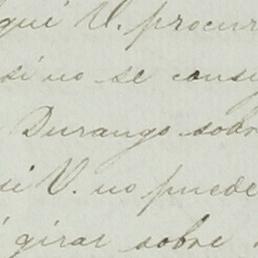 qui V. procur
si no se consi
Durango sobr
ui V. no puede
girar sobre